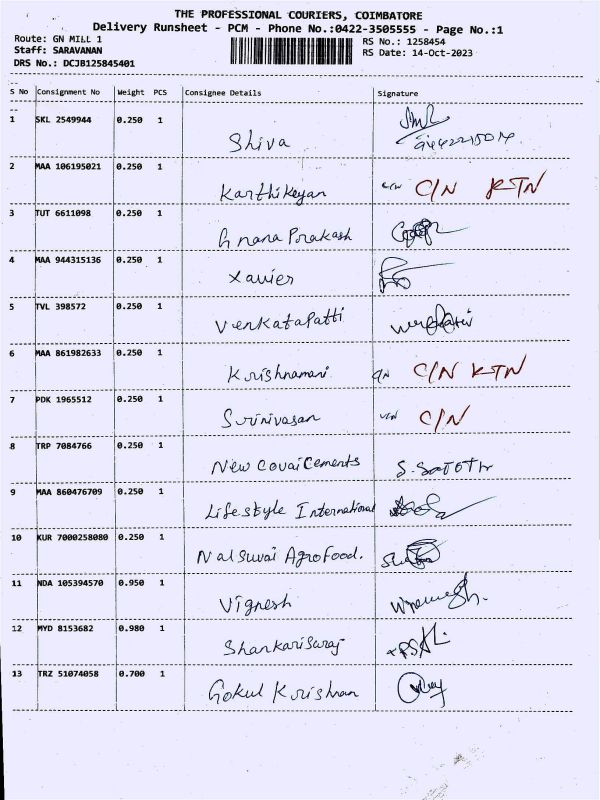 THE PROFESSIONAL COURIERS, COIMBATORE
Delivery Runsheet - PCM - Phone No.:0422-3505555 - Page No.:1
Route: GN MILL 1 RS No.: 1258454
Staff: SARAVANAN RS Date: 14-Oct-2023
DRS No.: DCJB125845401
S No Consignment No Weight PCS Consignee Details Signature
1 SKL 2549944 0.250 1
Shiva
2 MAA 106195021 0.250 1
Karthikeyan C/N RTN
3 TUT 6611098 0.250 1
Gnana Prakash
4 MAA 944315136 0.250 1
Xavier
5 TVL 398572 0.250 1
Venkatalatti
6 MAA 861982633 0.250 1
Krishnamani C/N RTN
7 PDK 1965512 0.250 1
Srinivasan C/N
8 TRP 7084766 0.250 1
New Covai Cements
9 MAA 860476709 0.250 1
Lifestyle International
10 KUR 7000258080 0.250 1
Nalsuvai Agro Food.
11 NDA 105394570 0.950 1
Vignesh
12 MYD 8153682 0.980 1
13 TRZ 51074058 0.700 1
Gokul Krishnan